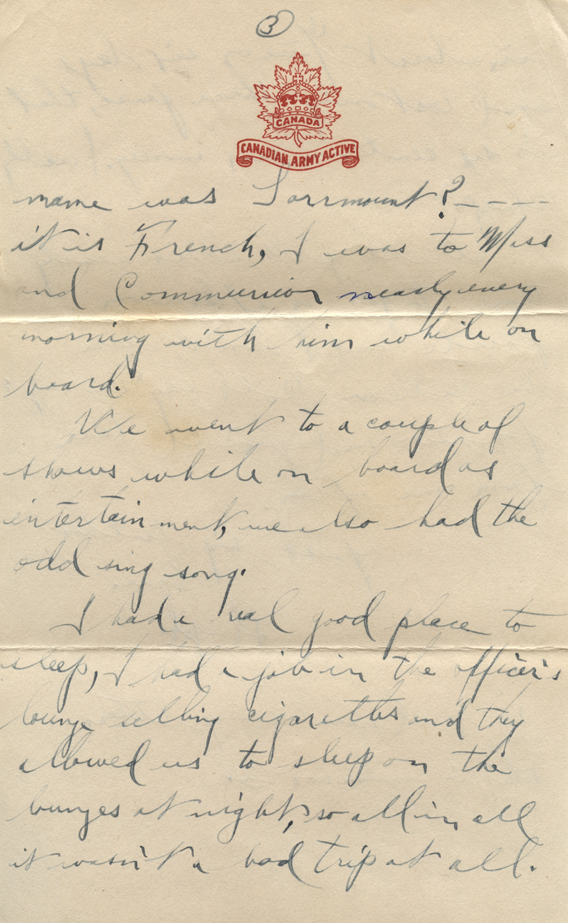 3
CANADA
CANADIAN ARMY ACTIVE
name was Sorrmount? - - - -
it is French, I was to Mass
and Communion nearly every
morning with him while on
board.
We went to a couple of
shows while on board as
entertainment, we also had the
odd sing song.
I had a real good place to
sleep, I had a job in the officer's
lounge selling cigarettes and they
allowed us to sleep on the
lounges at night, so all in all
it wasn't a bad trip at all.